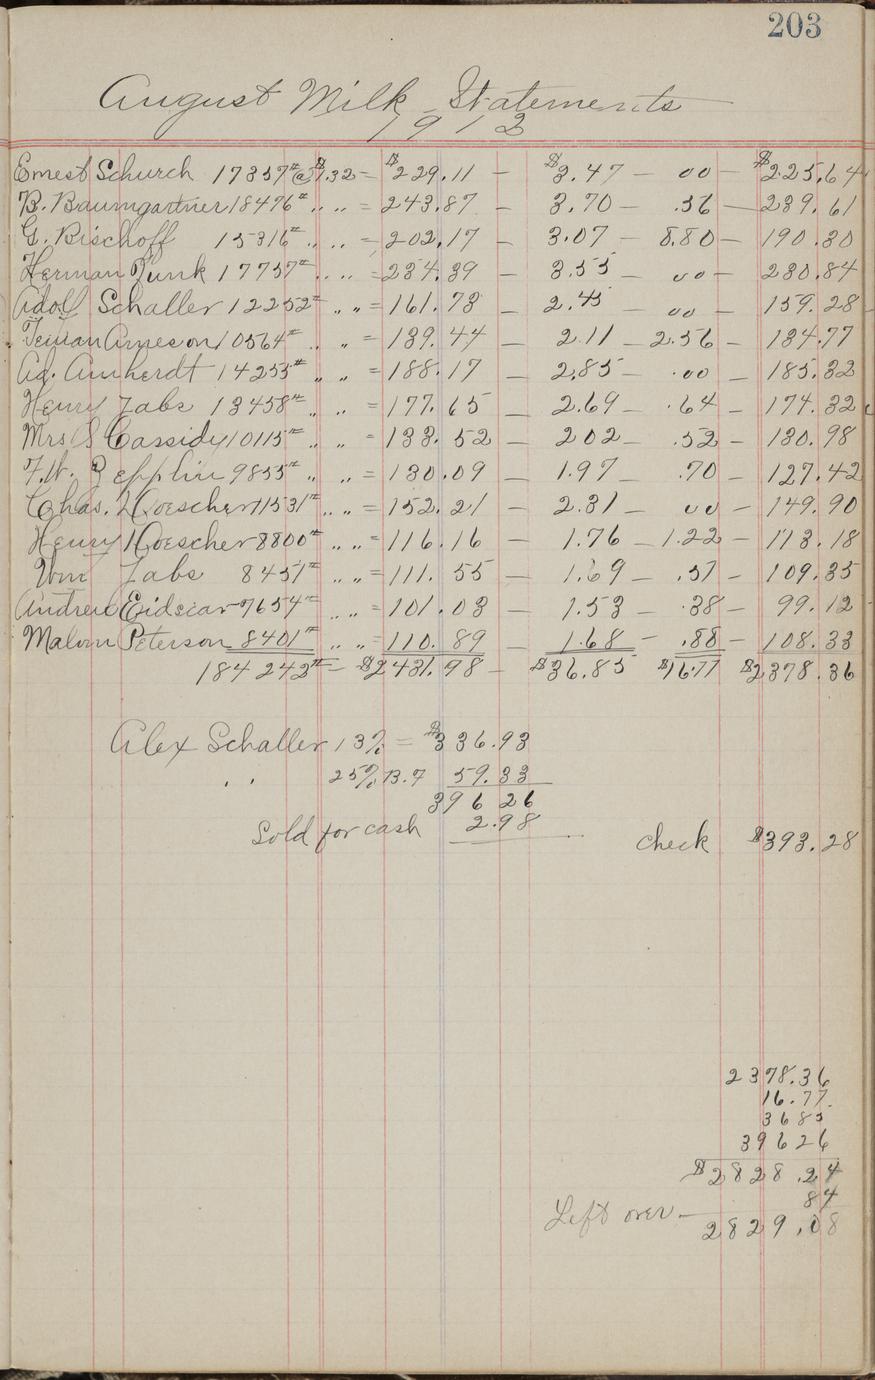 203
August Milk Statements
1913
Ernest Schurch 17357# @ $1.32 = $229.11 — $3.47 — 00 — $225.64
B. Baumgartner 18476# " " = 243.87 — 3.70 — .56 — 239.61
G. Bischoff 15316# " " = 202.17 — 3.07 — 8.80 — 190.30
Herman Zunk 17757# " " = 234.39 — 3.55 — 00 — 230.84
Adolf Schaller 12252# " " = 161.73 2.45 — 00 — 159.28
Arneson 10564# " " = 139.44 — 2.11 — 2.56 — 134.77
Ad. Amherdt 14255# " " = 188.17 — 2.85 — .00 — 185.32
Henry Zabs 13458# " " = 177.65 — 2.69 — .64 — 174.32
Mrs S Cassidy 10115# " " = 133.52 — 202 — .52 — 130.98
F.W. Zepplin 9855# " " = 130.09 — 1.97 — .70 — 127.42
Chas. Hoescher 11531# " " = 152.21 — 2.31 00 — 149.90
Henry Hoescher 8800# " " = 116.16 — 1.76 — 1.22 — 113.18
Wm Zabs 8451# " " = 111.55 — 1.69 — .51 — 109.35
Andrew 7654# " " = 101.03 — 1.53 — .38 — 99.12
Malvin Peterson 8401# " " = 110.89 — 1.68 — .88 — 108.33
184 242# — $2431.98 — $36.85 $16.77 $2378.36
Alex Schaller 13% = $336.93
" 25% B.F 59.33
396 26
Sold for cash 2.98
check $393.28
2378.36
16.77
3685
39626
$2828.24
84
Left over — 2829.08